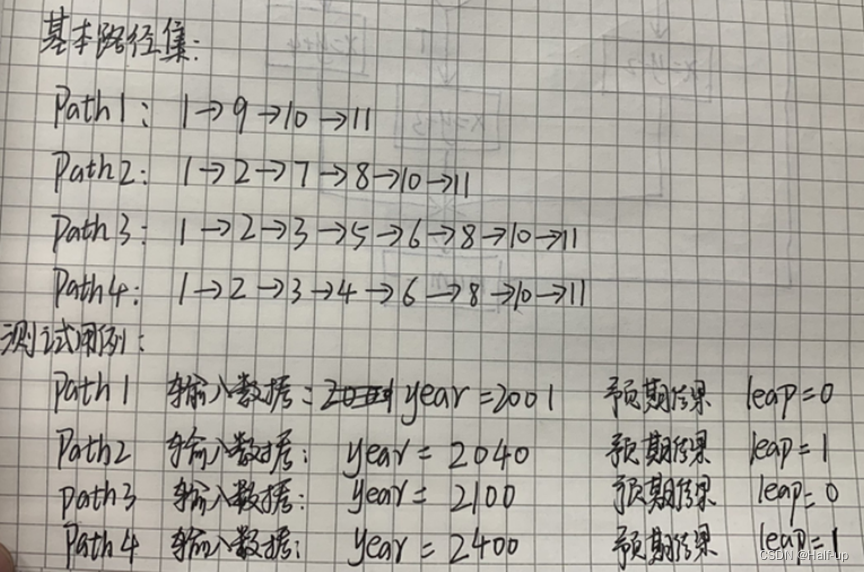 基本路径集:
Path1: 1→9→10→11
Path2: 1→2→7→8→10→11
Path3: 1→2→3→5→6→8→10→11
Path4: 1→2→3→4→6→8→10→11
测试用例:
Path1 输入数据: year=2001 预期结果 leap=0
Path2 输入数据: year=2040 预期结果 leap=1
Path3 输入数据: year=2100 预期结果 leap=0
Path4 输入数据: year=2400 预期结果 leap=1
CSDN @Half-up